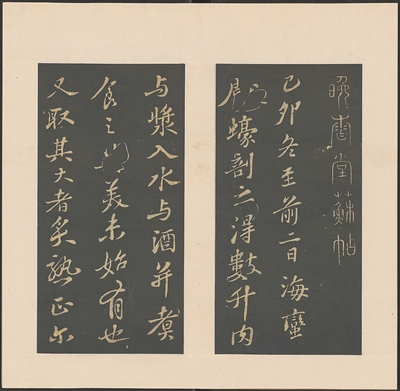 晚香堂蘇帖
己卯冬至前二日海蠻
獻蠔剖之得數升肉
与漿入水与酒并煮
食之甚美未始有也
又取其大者炙熟正尔